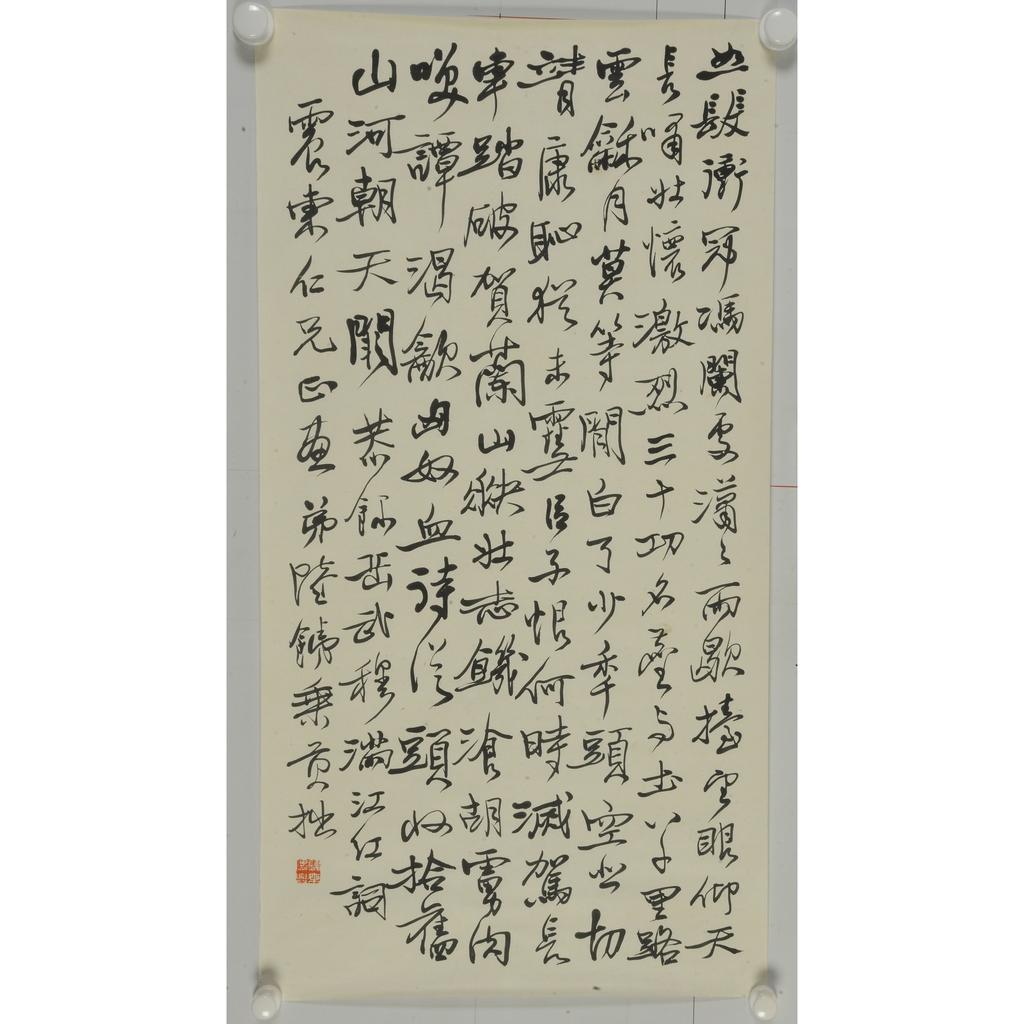 怒髮衝冠馮闌處瀟〻雨歇擡望眼仰天
長嘯壯懷激烈三十功名塵與土八千里路
雲龢月莫等閒白了少年頭空悲切
靖康恥猶未雪臣子恨何時滅駕長
車踏破賀蘭山缺壯志饑湌胡虜肉
咲譚渴飲匈奴血待從頭收拾舊
山河朝天闕 恭錄岳武穆滿江紅詞
震東仁兄正 弟陸 乘貢拙